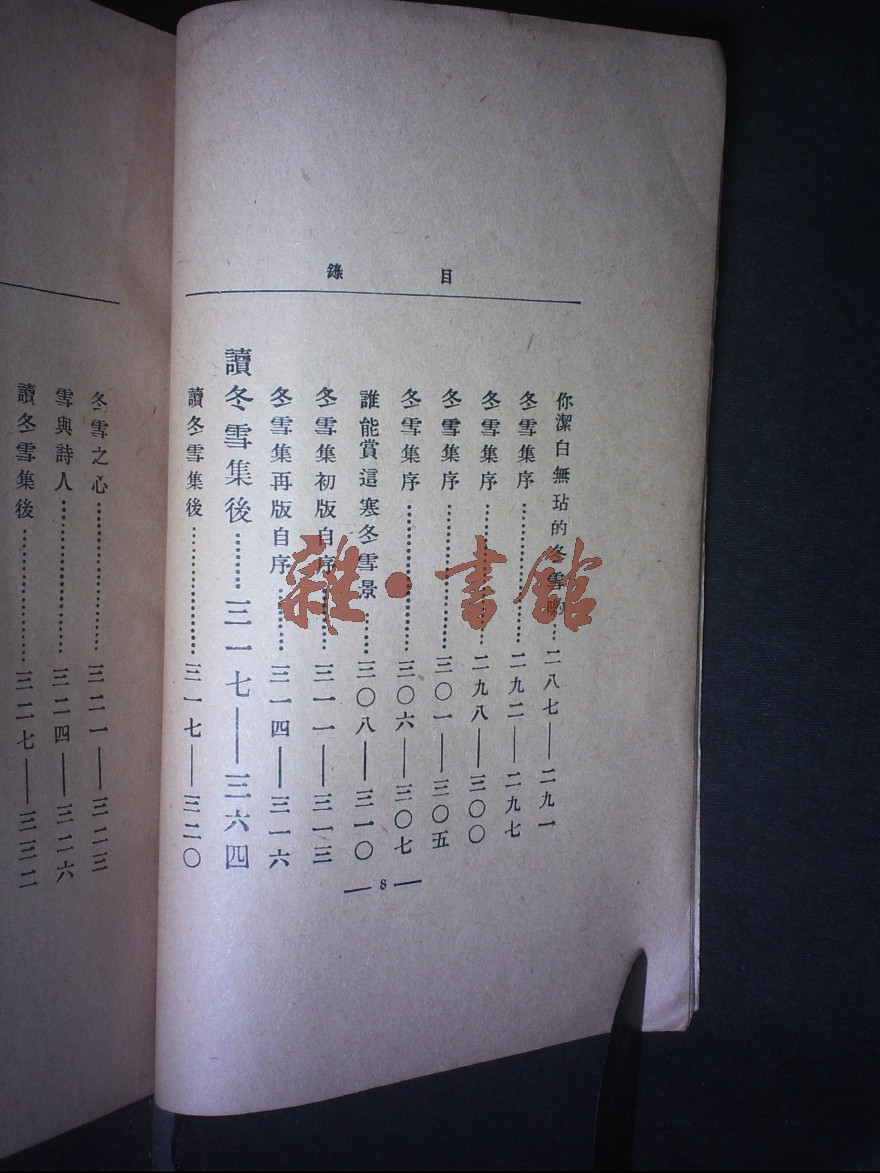 目錄
你潔白無玷的冬雪喲…二八七——二九一
冬雪集序………………二九二——二九七
冬雪集序………………二九八——三〇〇
冬雪集序………………三〇一——三〇五
冬雪集序………………三〇六——三〇七
誰能賞這寒冬雪景……三〇八——三一〇
冬雪集初版自序………三一一——三一三
冬雪集再版自序………三一四——三一六
讀冬雪集後……三一七——三六四
讀冬雪集後……………三一七——三二〇
— 8 —
冬雪之心………………三二一——三二三
雪與詩人………………三二四——三二六
讀冬雪集後……………三二七——三三二
雜·書館